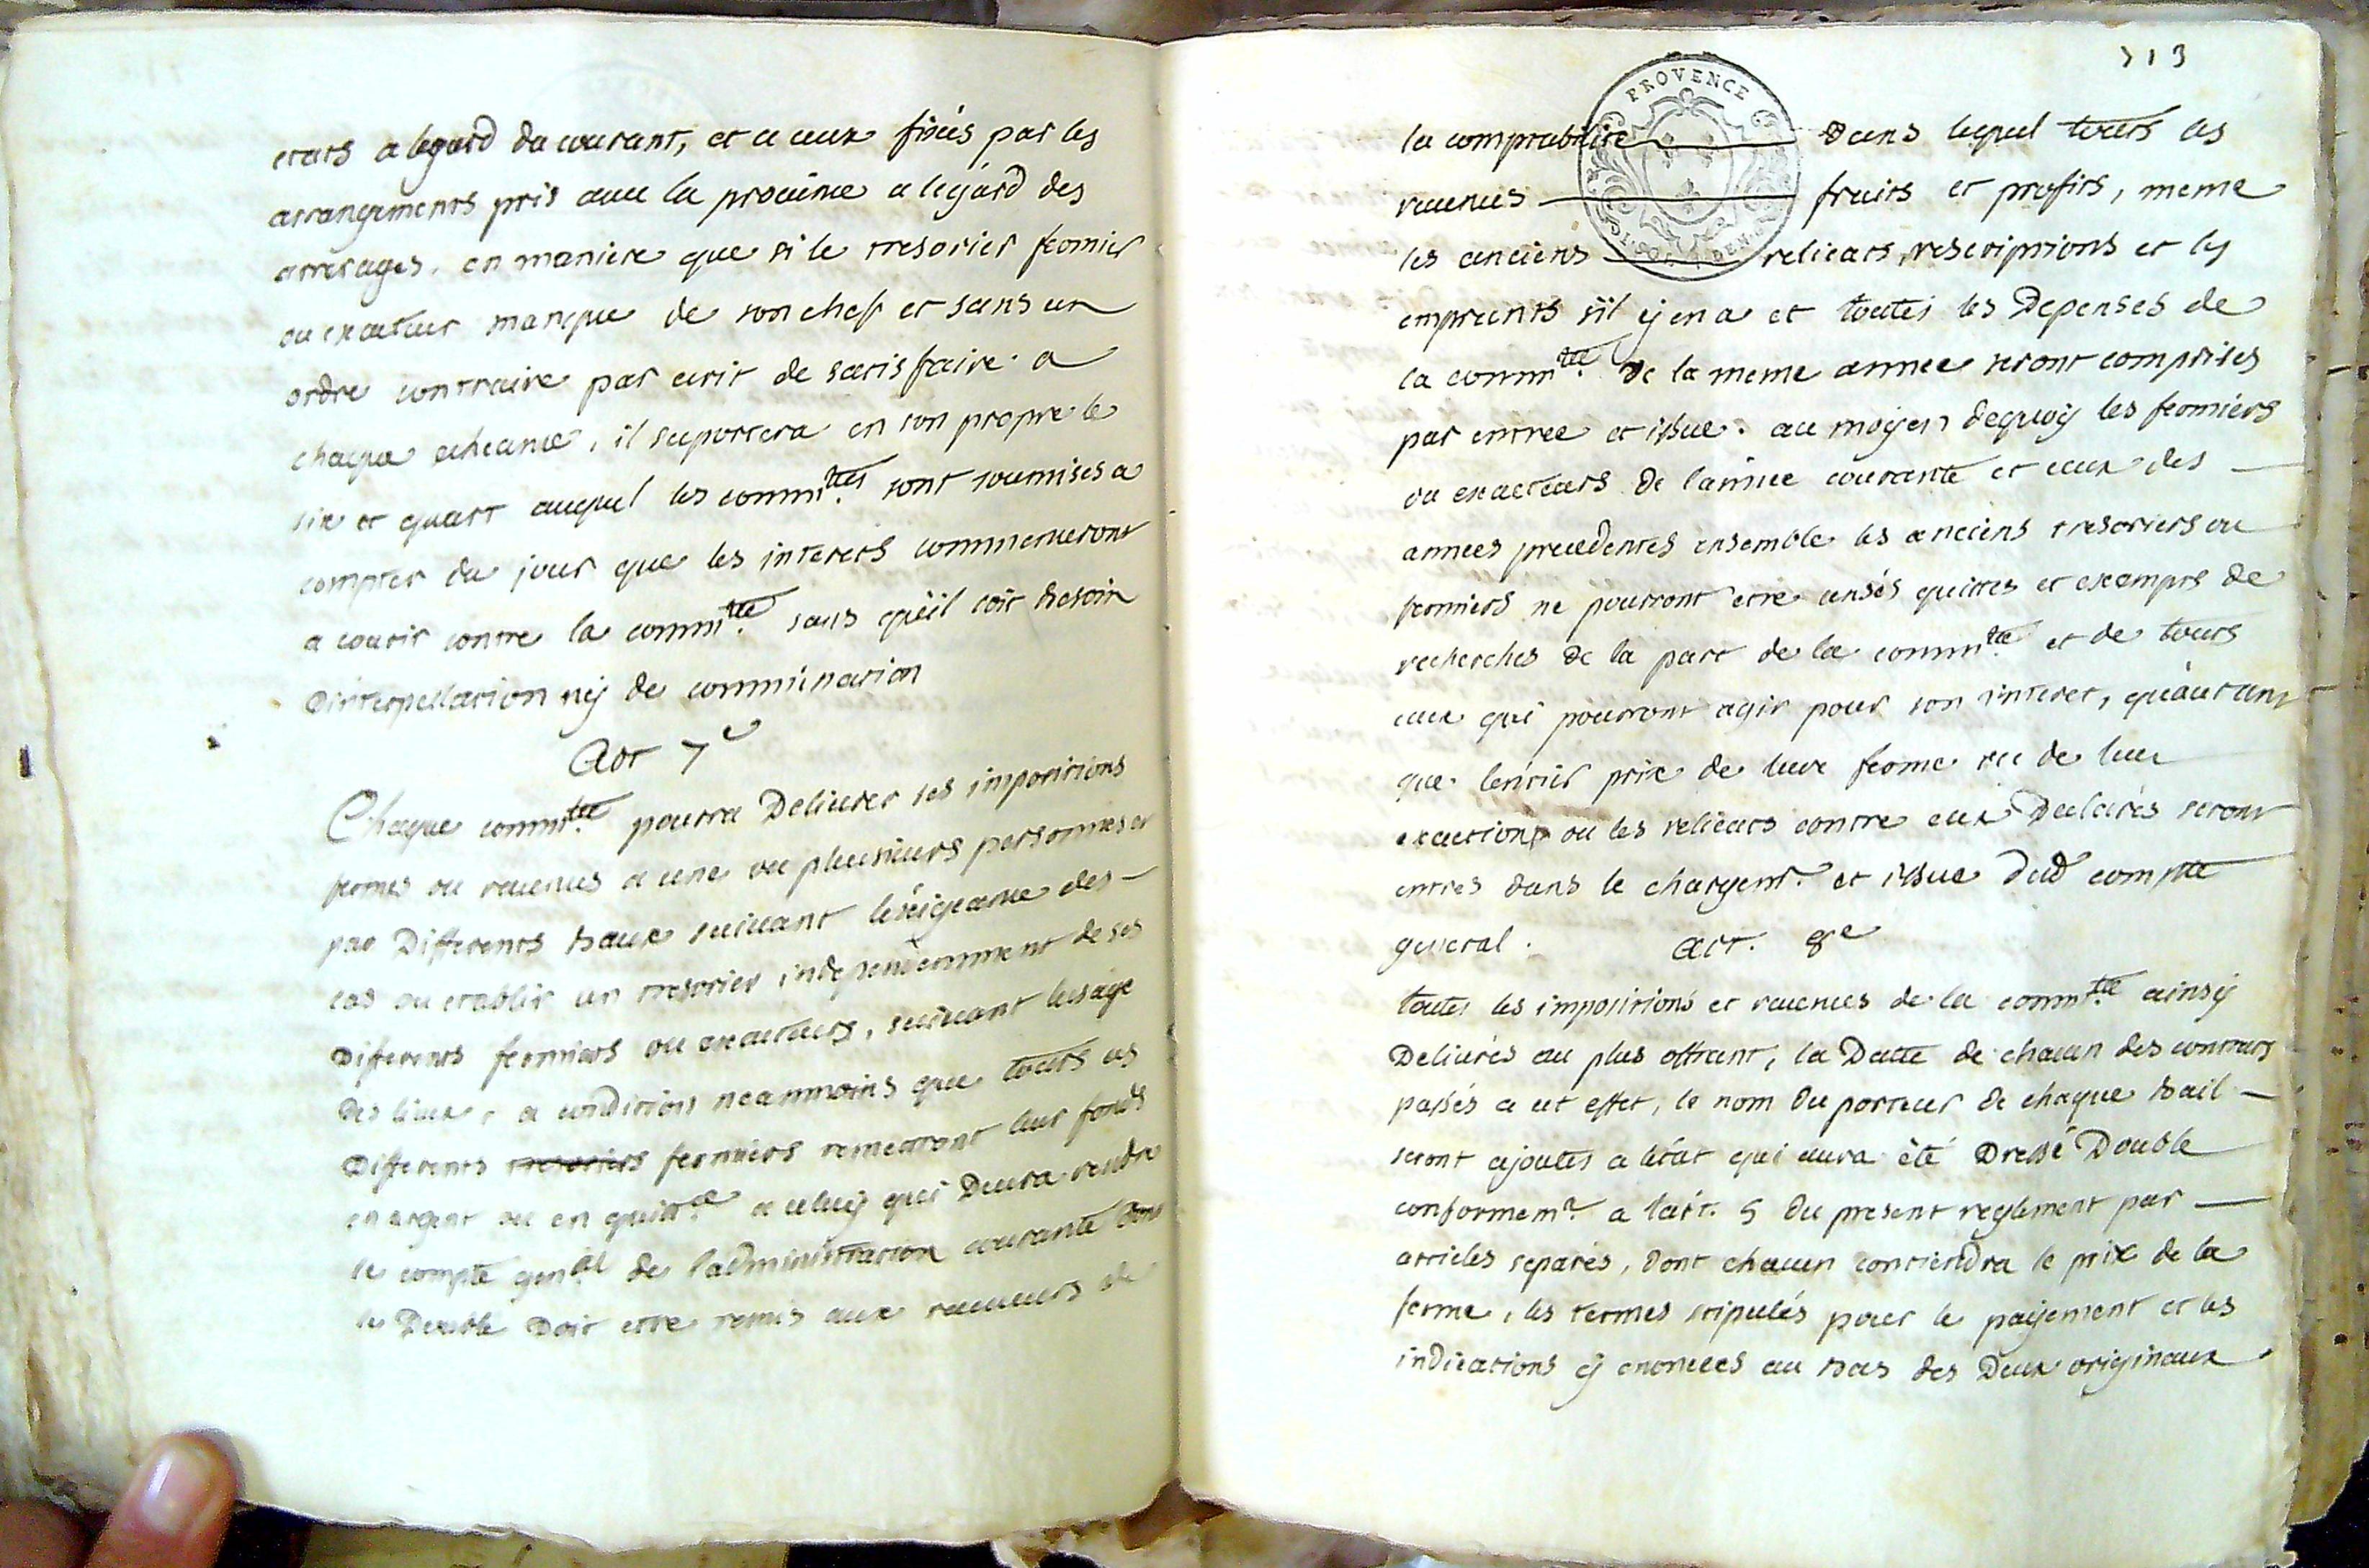 etats a legard du courant, et a ceux fixés par les
arrangements pris avec la province a legard des
arrerages. en maniere que si le tresorier fermier
ou exacteur manque de son chef et sans un
ordre contraire par ecrit de satisfaire a
chaque echeance, il suportera en son propre le
six et quart auquel les comm.tés sont soumises a
compter du jour que les interets commenceront
a courir contre la comm.té sans qu'il soit besoin
d'interpellation ny de commination
Art 7e
Chaque comm.té pourra delivrer ses impositions
fermes ou revenus a une ou plusieurs personnes et
par differents baux suivant l'exigeance des
cas ou etablir un tresorier independemment de ses
differents fermiers ou exacteurs, suivant lusage
des lieux, a condition neanmoins que touts ces
differents tresoriers fermiers remettront leur fonds
en argent ou en quitt.ce a celuy qui devra rendre
le compte gen.al de l'administration courante dont
le double doit etre remis aux receveurs de
313
PROVENCE
la comptabilité dans lequel touts les
revenus fruits et profits, meme
les anciens relicats, rescriptions et les
emprunts s'il y en a et toutes les depenses de
la comm.té de la meme année seront comprises
par entree et issue. au moyen dequoy les fermiers
ou exacteurs de l'année courante et ceux des
annees precedentes ensemble les anciens tresoriers ou
fermiers ne pourront etre censés quittes et exempts de
recherches de la part de la comm.té et de touts
ceux qui pourront agir pour son interet, qu'autant
que lentier prix de leur ferme ou de leur
exaction ou les relicats contre eux declarés seront
entrés dans le chargem.t et issue dud compte
general.
art. 8e
toutes les impositions et revenus de la comm.té ainsy
delivrés au plus offrant, la datte de chacun des contrats
passés a cet effet, le nom du porteur de chaque bail
seront ajoutés a létat qui aura été dressé double
conformem.t a l'art. 5 du present reglement par
articles separés, dont chacun contiendra le prix de la
ferme, les termes stipulés pour le payement et les
indications y enoncees au bas des deux originaux